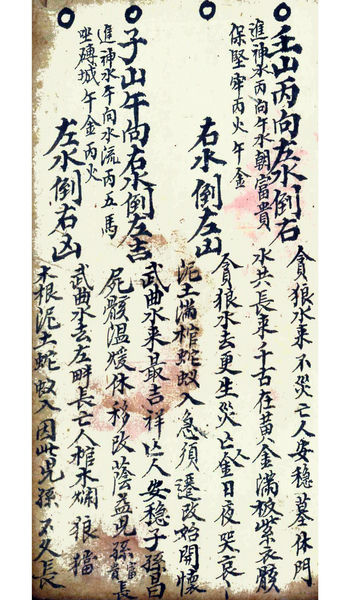 壬山丙向左水倒右
進神水丙向午水朝富貴
保堅牢丙火午金
貪狼水来不災亡人安穩墓休門
水共長来千古在黃金滿极紫衣骸
右水倒左山
貪狼水去更生災亡人金日夜哭哀
泥土滿棺蛇蚁入急須遷改始開懷
子山午向右水倒左吉
進神水午向水流丙五馬
坐磚城午金丙火
武曲水来最吉祥亡人安穩子孫昌
屍骸温煖休移改蔭益兒孫富貴長
左水倒右凶
武曲水去左畔長亡人棺木爛狼擋
木根泥土蛇蚁入因此兒孫不久長